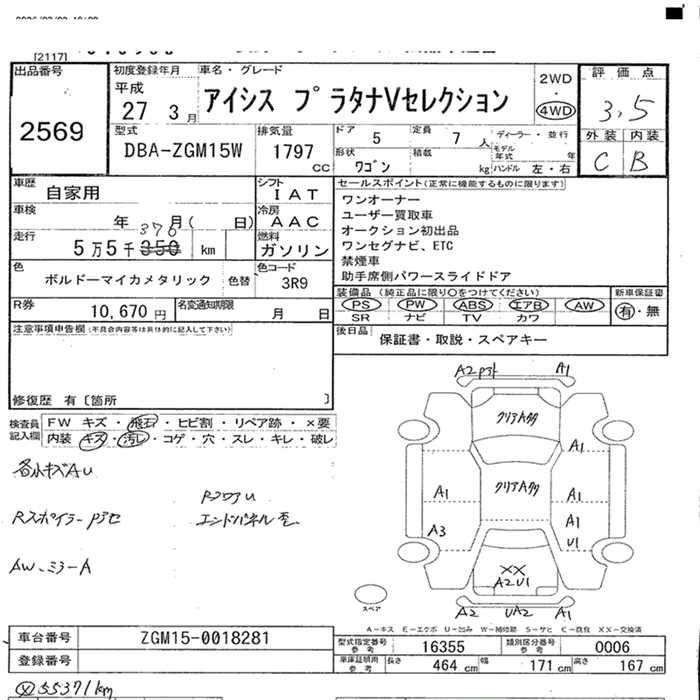 [2117]
出品番号
2569
初度登録年月
平成
27 3月
車名・グレード
アイシス プラタナVセレクション
2WD
・
4WD
評価点
3,5
外装 内装
C B
型式
DBA-ZGM15W
排気量
1797
CC
ドア
5
定員
7
人
ディーラー・並行
形状
ワゴン
積載
kg
モデル年式
年
ハンドル 左・右
車歴
自家用
シフト
IAT
車検
年 月( 日)
冷房
AAC
走行
370
5万5千350 km
燃料
ガソリン
色
ボルドーマイカメタリック
色替
色コード
3R9
R券
10,670円
名変通知期限
月 日
セールスポイント(正常に機能するものに限ります)
ワンオーナー
ユーザー買取車
オークション初出品
ワンセグナビ、ETC
禁煙車
助手席側パワースライドドア
装備品 (純正品に限り〇をつけてください)
PS PW ABS エアB AW
SR ナビ TV カワ
新車保証書
有・無
後日品
保証書・取説・スペアキー
注意事項申告欄(不具合内容等は具体的に記入して下さい)
修復歴 有〔箇所 〕
検査員
記入欄
FW キズ・飛石・ヒビ割・リペア跡・×要
内装 キズ・汚レ・コゲ・穴・スレ・キレ・破レ
各小キズAU
RフロアU
Rスポイラー
エンドパネル
AW、ミラーA
A2
A1
クリアA多
A1
クリアA多
A1
A1
A3
A1
U1
XX
A2U1
A2
UA2
A1
スペア
A-キズ E-エクボ U-凹み W-補修跡 S-サビ C-腐食 XX-交換済
車台番号
ZGM15-0018281
登録番号
型式指定番号
参考
16355
類別区分番号
参考
0006
車庫証明用
参考
長さ
464 cm
幅
171 cm
高さ
167 cm
55371km